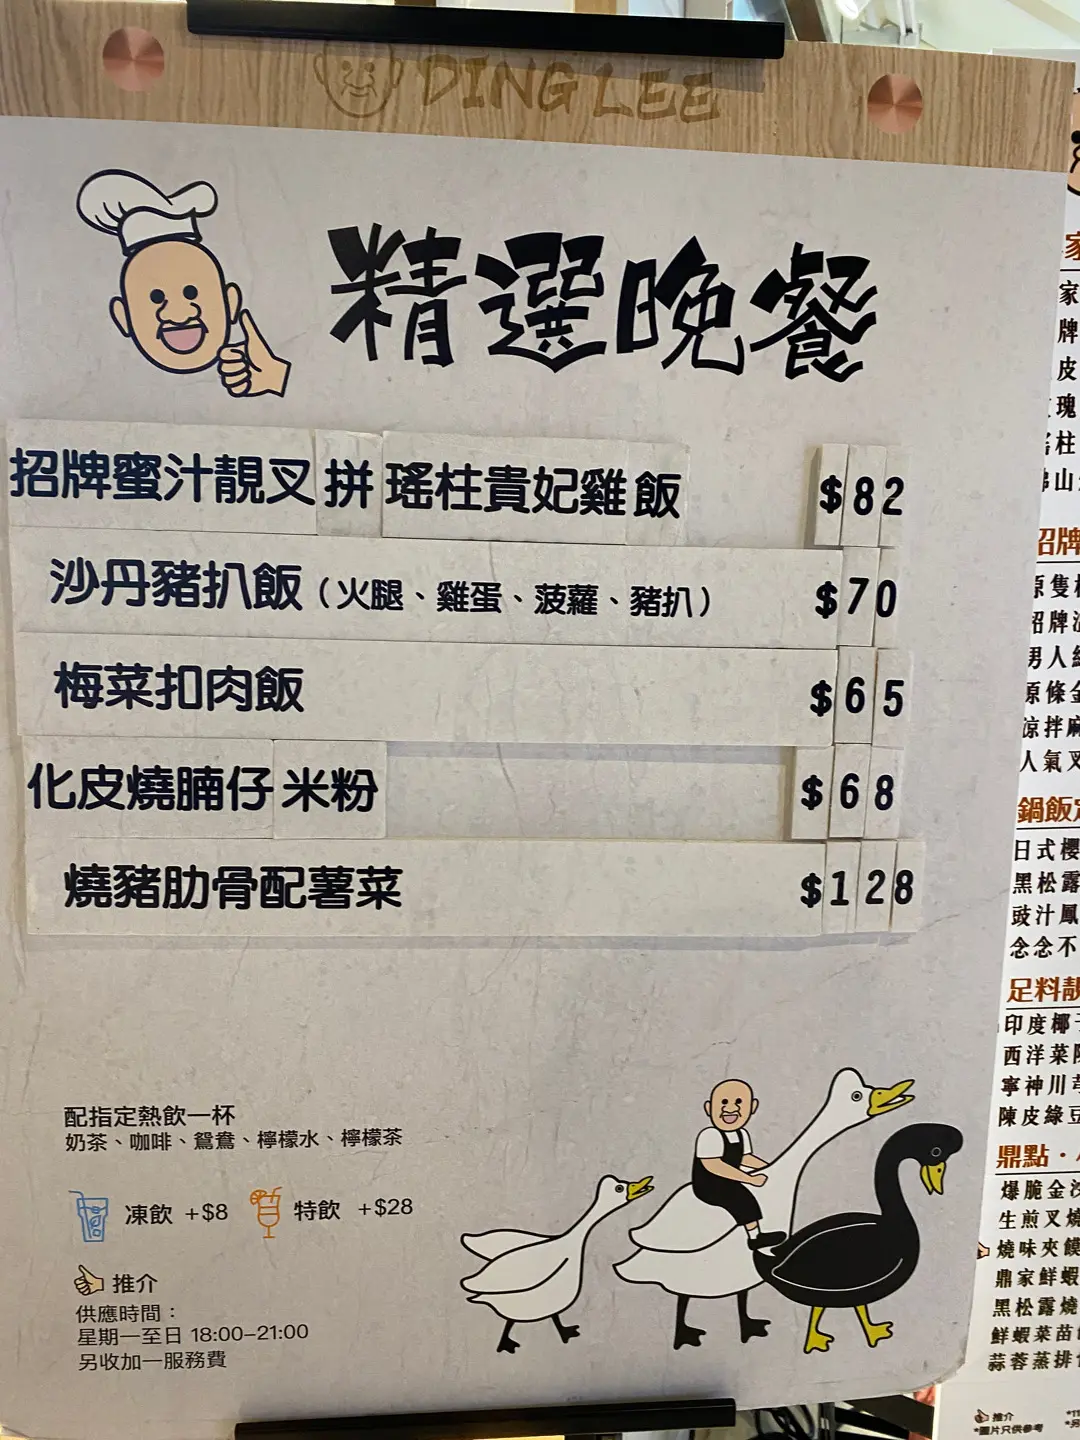 DING LEE
精選晚餐
招牌蜜汁靚叉拼瑤柱貴妃雞飯 $82
沙丹豬扒飯（火腿、雞蛋、菠蘿、豬扒） $70
梅菜扣肉飯 $65
化皮燒腩仔米粉 $68
燒豬肋骨配薯菜 $128
配指定熱飲一杯
奶茶、咖啡、鴛鴦、檸檬水、檸檬茶
凍飲 +$8 特飲 +$28
推介
供應時間：
星期一至日 18:00–21:00
另收加一服務費
家
家
牌
皮
瑰
柱
山
招牌
原隻
招牌
男人
原條金
涼拌麻
人氣叉
鍋飯定
日式櫻
黑松露
豉汁鳳
念念不
足料靚
印度椰子
西洋菜陳
寧神川
陳皮綠豆
鼎點·
爆脆金沙
生煎叉燒
燒味夾饃
鼎家鮮蝦
黑松露燒
鮮蝦菜苗
蒜蓉蒸排
推介
*圖片只供參考